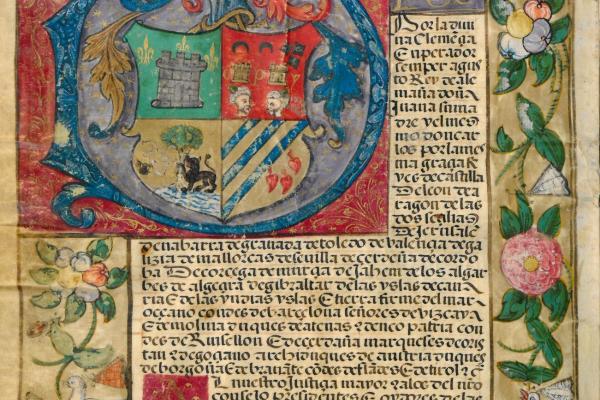 Por la divi
na Clemēçia
Enperador
semper agus
to Rey de ale
maña doña
Juana su ma
dre y el mes
mo don car
los por la mes
ma graçia Re
yes de castilla
De leon de a
ragon de las
dos seçilias
De jerusalē
De nabarra de granada de toledo de valençia de ga
lizia de mallorcas de sevilla de çerdeña de cordo
ba De corçega de murçia de Jahen de los algar
bes de algezira de gibraltar de las yslas de cana
ria E de las yndias yslas E tierra firme del mar
oçeano condes de barçelona señores de vizcaya
E de molina duques de atenas E de neopatria con
des de Ruisellon E de çerdaña marqueses de oris
tan E de goçiano archiduques de austria duques
de borgoña E de brabante cōdes de flādes E de tirol Eç
A l nuestro Justiçia mayor E a los del nrō
consejo presidentes E oydores de las